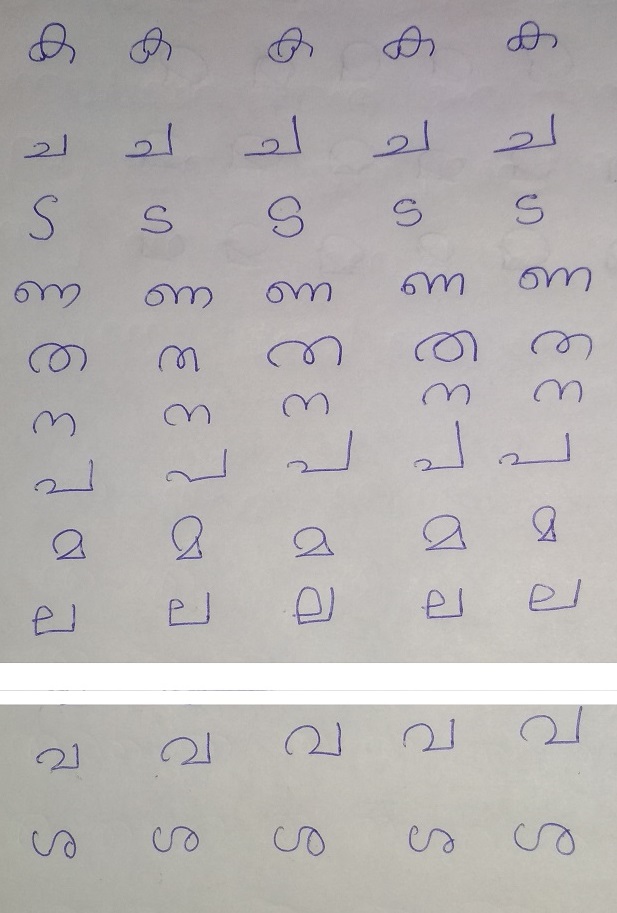 ക ക ക ക ക
ച ച ച ച ച
ട ട ട ട ട
ണ ണ ണ ണ ണ
ത ത ത ത ത
ന ന ന ന ന
പ പ പ പ പ
മ മ മ മ മ
ല ല ല ല ല
വ വ വ വ വ
ശ ശ ശ ശ ശ